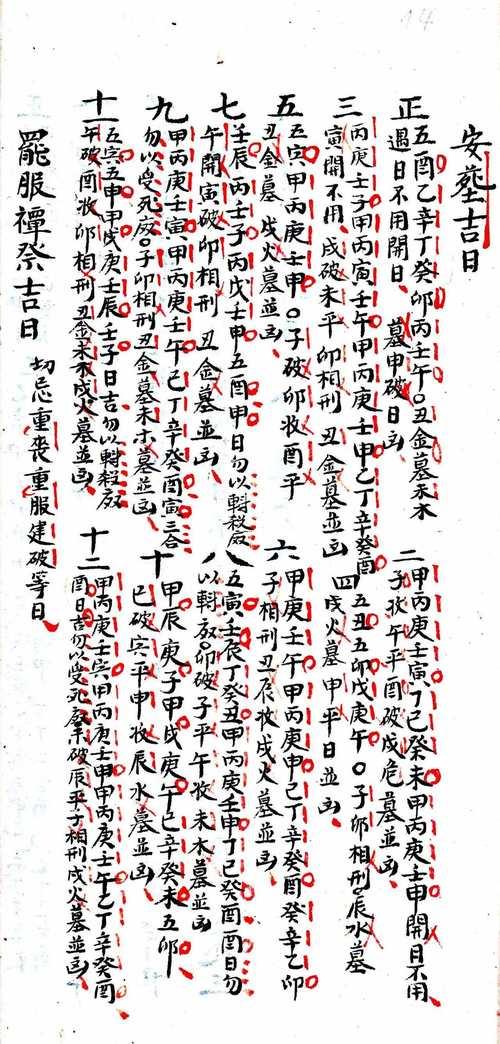 14
安塟吉日
正 五酉乙辛丁癸卯丙壬午〇丑金墓未木
遇日不用開日、墓申破日凶、
二 甲丙庚壬寅、丁己癸未甲丙庚壬申開日不用
子收午平酉破戌危墓並凶、
三 丙庚壬子甲丙寅壬午甲丙庚壬申乙丁辛癸酉
寅開不用、戌破未平卯相刑丑金墓並凶
四 五丑五卯戊庚午〇子卯相刑辰水墓
戌火墓申平日並凶、
五 五寅甲丙庚壬申〇子破卯收酉平
丑金墓戌火墓並凶、
六 甲庚壬午甲丙庚申己丁辛癸酉癸辛乙卯
子相刑丑辰收戌火墓並凶、
七 壬辰丙壬子丙戊壬申五酉申日勿以
午開寅破卯相刑丑金墓並凶、
八 五寅、壬辰丁癸丑甲丙庚壬申丁己癸酉酉日勿
以 卯破子平午收未木墓並凶
九 甲丙庚壬寅、甲丙庚壬午己丁辛癸酉寅三合
勿以受死 〇子卯相刑丑金墓未木墓並凶、
十 甲辰庚子甲戌庚午己辛癸未五卯
巳破寅平申收辰水墓並凶、
十一 五寅、五申甲戌庚壬辰壬子日吉勿以
午破酉收卯相刑丑金未木戌火墓並凶、
十二 甲丙庚壬寅甲丙庚壬申甲丙庚壬午乙丁辛癸酉
酉日吉勿以受死 未破辰平子相刑戌火墓並凶、
罷服禫祭吉日 切忌重喪重服建破等日、